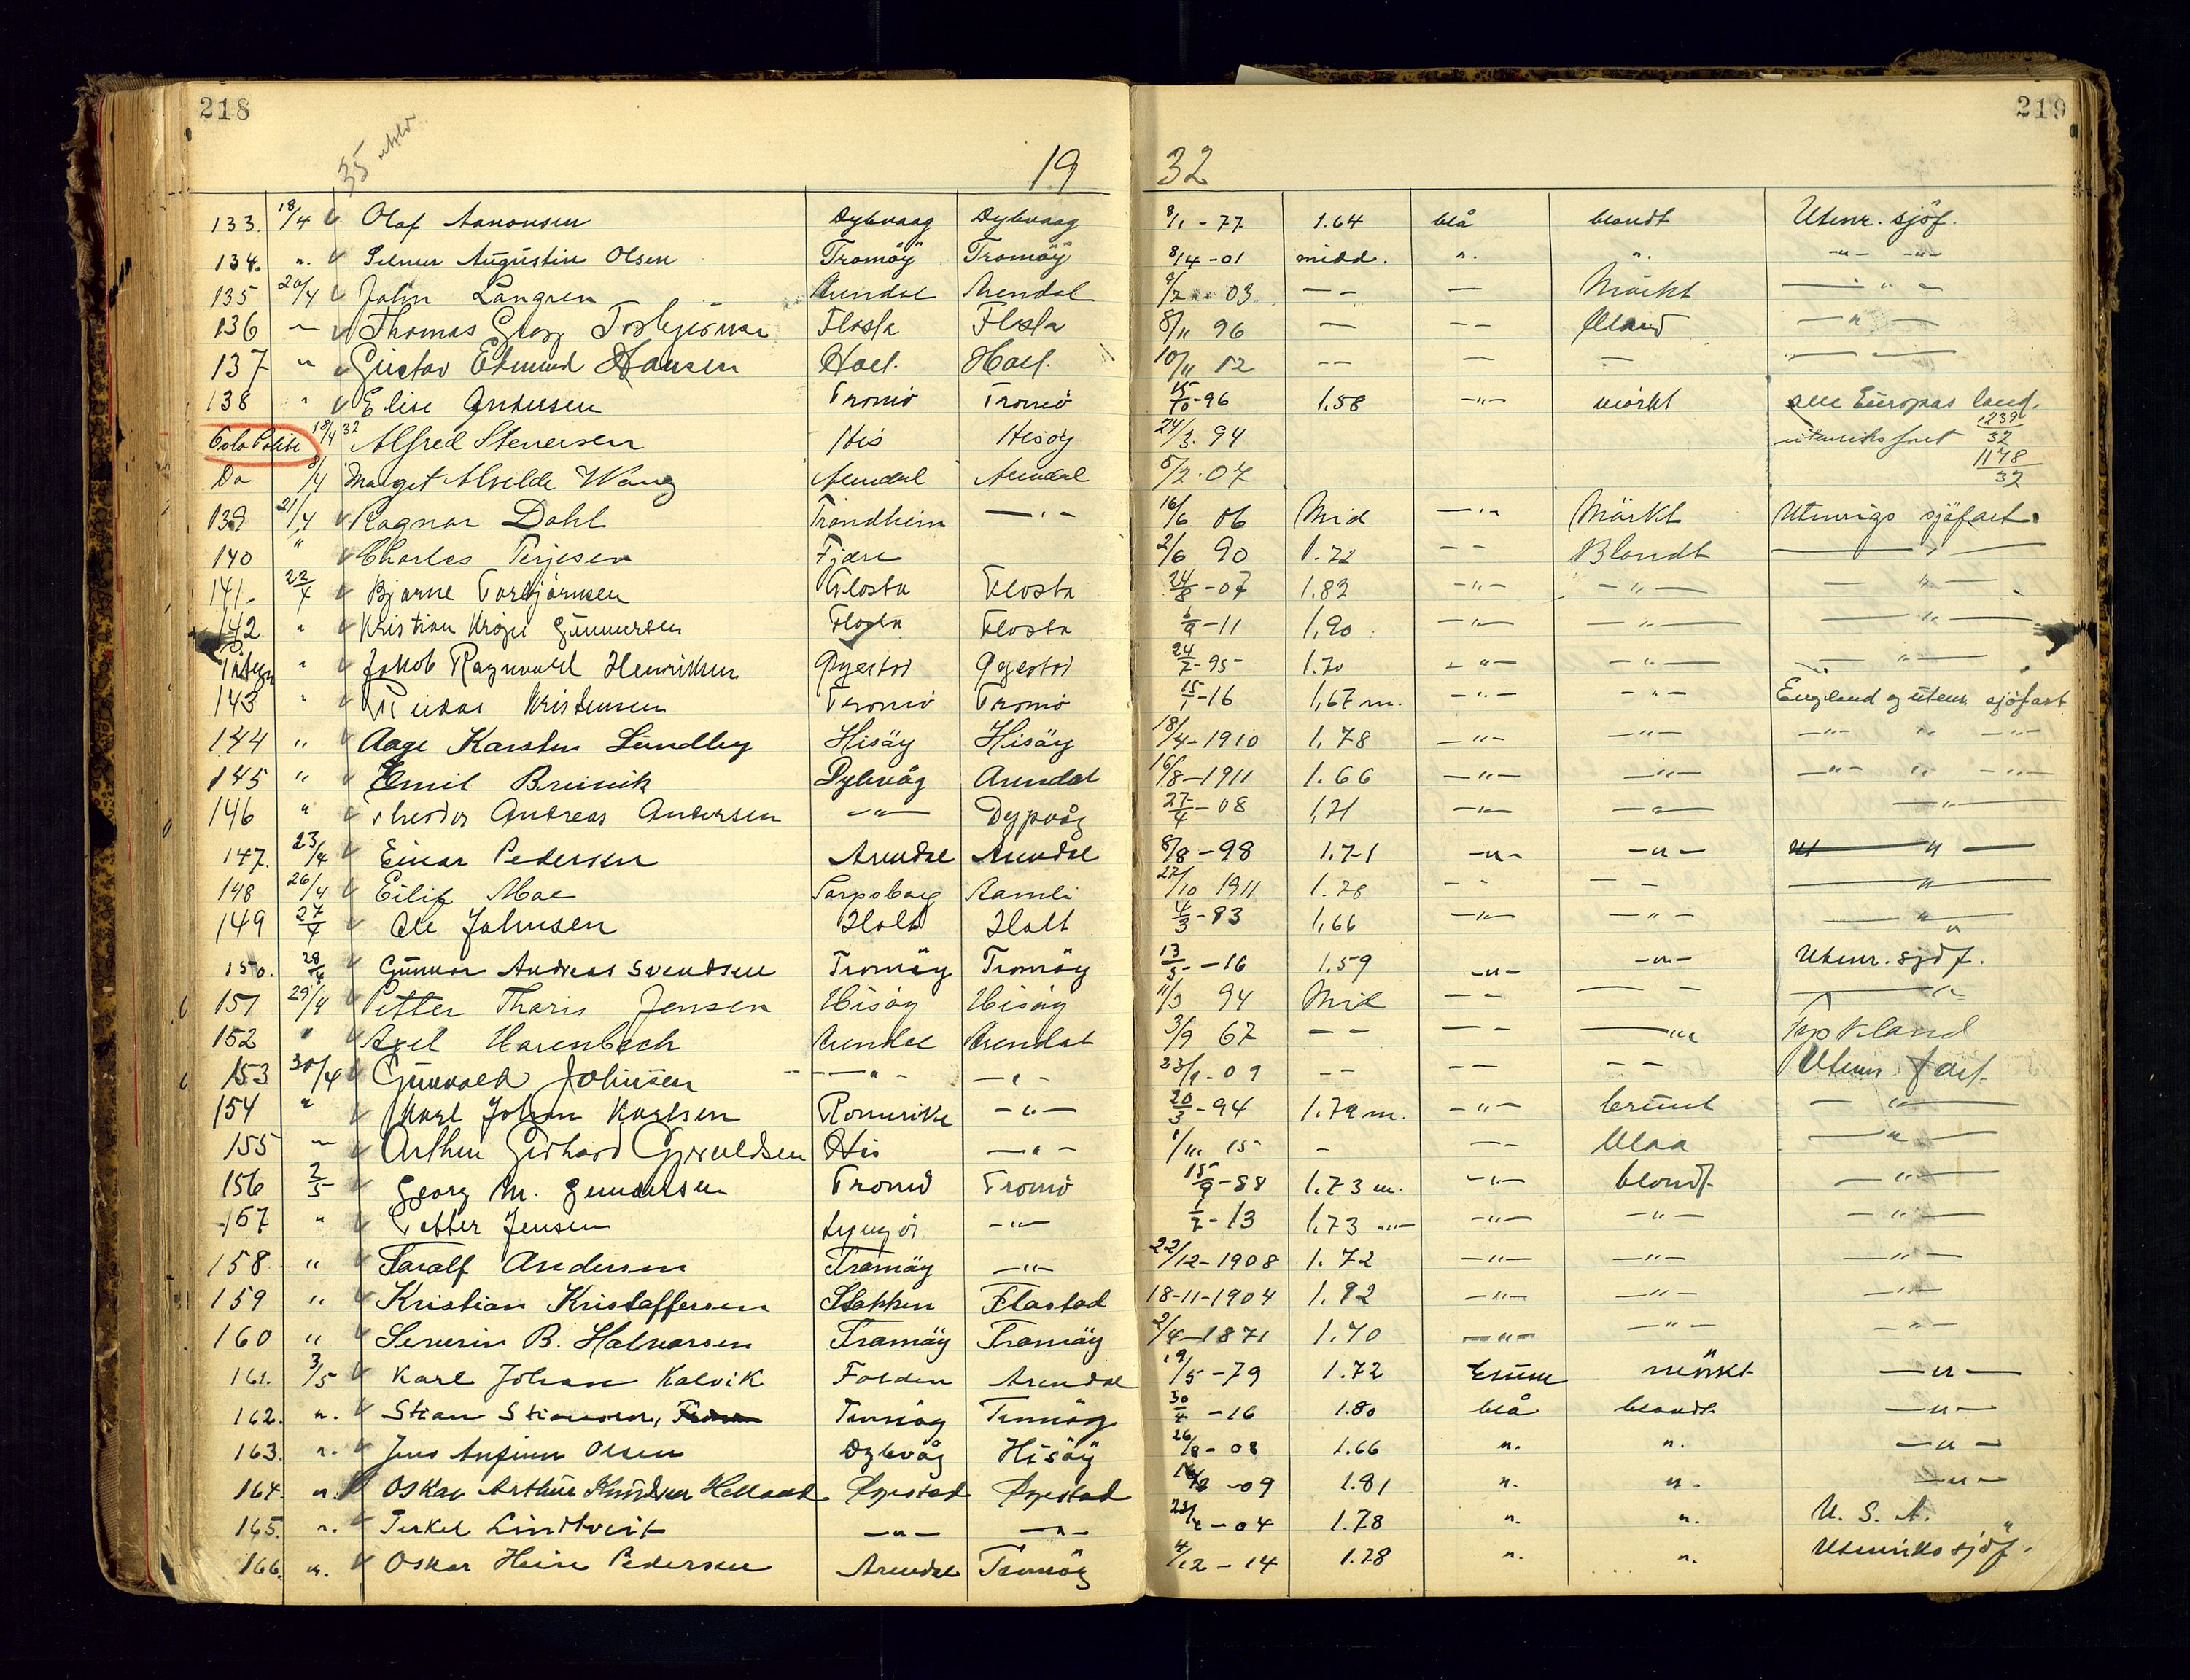 218 219
35
19 32
133. 18/4 Olaf Aanonsen Dybvaag Dybvaag 8/1 - 77 1.64 blå blondt Utenr. sjöf.
134. n. Selmer Augustin Olsen Tromöy Tromöy 8/14 - 01 midd. n. n. -"- -"-
135 20/4 John Langren Arendal Arendal 03 - - — Mörkt — " -
136 " Thomas Georg Torbjörnsen Flosta Flosta 8/11 96 — - - Bland — " —
137 " Gustav Edmund Hansen Holt. Holt. 10/11 12 - - — — — —
138 " Elise Andersen Tromö Tromö 15/10 - 96 1,58 -"- mörkt alle Europas land.
Oslo Politi 18/4 32 Alfred Stenersen His Hisöy 24/3. 94 utenriks fart 1239/32
Do 8/4 Margot Alvilde Wang Arendal Arendal 5/2. 07 1178/32
139 21/4 Ragnar Dahl Trondheim — " - 16/6 06 Mid — " - Mörkt Utenrigs sjöfart.
140 " Charles Terjesen Fjære 2/6 90 1.72 - - Blondt — " —
141. 22/4 Bjarne Torbjörnsen Flosta Flosta 24/8 - 07 1.82 -"- -"— — " —
142 " Kristian Krogh Gunnersen Flosta Flosta 6/9 - 11 1,90 -"- -"— — " —
Påtegn " Jakob Ragnvald Henriksen Øyestad Øyestad 24/7 - 95 1.70 - " - -"— — " —
143 " Reidar Kristensen Tromö Tromö 15/1 - 16 1,67 m. -"- -"- England og utenr. sjöfart
144 " Aage Karsten Lundby Hisöy Hisöy 18/4 - 1910 1.78 -"- -"- -"- " -"-
145 " Emil Brunik Dybvåg Arendal 16/8 - 1911 1.66 -"- -"- -"- " -"-
146 " Theodor Andreas Andersen -"- Dypvåg 27/4 - 08 1,71 -"- -"- — " —
147. 23/4 Einar Pedersen Arendal Arendal 8/8 - 98 1,71 -"- -"- — " —
148 26/4 Eilif Moe Sarpsborg Aamli 27/10 1911 1.78 - - - - — " —
149 27/4 Ole Johnsen Holt Holt 4/3 - 83 1,66 -"- -"- — " —
150. 28/4 Gunnar Andreas Svendsen Tromöy Tromöy 13/5 - 16 1.59 -"- -"- Utenr. sjöf.
151 29/4 Petter Tharis Jensen Hisöy Hisöy 11/3 94 Mid - - — - — "
152 " Axel Harenbech Arendal Arendal 3/9 67 - - — - — " Tyskland
153 30/4 Gunvald Johnsen — " - — " - 23/9 - 09 - - - - - - Utenr fart
154 " Karl Johan Karlsen Romerike -"- 20/3 - 94 1.79 m. -"- brunt — " —
155 " Arthur Gerhard Gjeruldsen His — " - 15 - - - Blaa — " —
156 2/5 Georg M. Gundersen Tromö Tromö 15/9 - 88 1.73 m. -"- blondt — " —
157 " Petter Jensen Lyngör -"- 1/7 - 13 1,73 -"- -"- -"- — " —
158 " Taralf Andersen Tromöy -"- 22/12 - 1908 1.72 -"- -"- -"-
159 " Kristian Kristoffersen Stokken Flostad 18-11-1904 1.92 -"- -"- -"-
160 " Severin B. Halvorsen Tromöy Tromöy 2/4 - 1871 1.70 -"- -"- -"-
161. 3/5 Karl Johan Kalvik Folden Arendal 19/5 - 79 1.72 brune mörkt -"-
162. n. Stian Stiansen, Tromöy Tromöy 30/4 - 16 1.80 blå blondt -"-
163. n. Jens Anfinn Olsen Dybvåg Hisöy 26/8 - 08 1.66 n. n. -"-
164. n. Oskar Arthur Knudsen Helland Øyestad Øyestad - 09 1.81 n. n. -"-
165. n. Terkel Lindtveit -"- -"- - 04 1.78 n. n. U. S. A.
166. n. Oskar Hein Pedersen Arendal Tromöy 4/12 - 14 1.78 n. n. Utenriks sjöf.